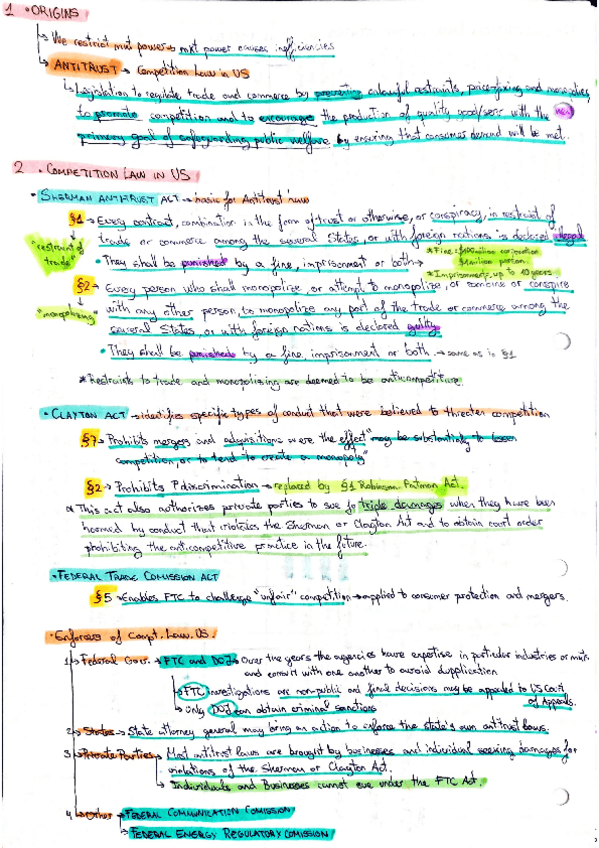 1 • ORIGINS
↳ We restrict mkt power → mkt power causes inefficiencies
↳ ANTITRUST → Competition Laws in US
↳ Legislation to regulate trade and commerce by preventing unlawful restraints, price-fixing and monopolies,
to promote competition and to encourage the production of quality good/serv with the
primary goal of safeguarding public welfare by ensuring that consumer demand will be met.
2 • COMPETITION LAW IN US
• SHERMAN ANTITRUST ACT → basis for Antitrust law
§1 → Every contract, combination in the form of trust or otherwise, or conspiracy, in restraint of
"restraint of trade"
trade or commerce among the several States, or with foreign nations, is declared illegal
• They shall be punished by a fine, imprisonment or both →
* Fine: $100million corporation
$1million person.
* Imprisonment, up to 10 years.
§2 → Every person who shall monopolize, or attempt to monopolize, or combine or conspire
"monopolizing"
with any other person, to monopolize any part of the trade or commerce among the
several States, or with foreign nations is declared guilty
• They shall be punished by a fine, imprisonment or both. → same as in §1
* Restraints to trade and monopolising are deemed to be anticompetitive
• CLAYTON ACT → identifies specific types of conduct that were believed to threaten competition
§7 → Prohibits mergers and adquisitions were the effect "may be substantially to lessen
competition, or to tend to create a monopoly"
§2 → Prohibits Pdiscrimination → replaced by §1 Robinson Patman Act.
This act also authorizes private parties to sue for triple damages when they have been
harmed by conduct that violates the Sherman or Clayton Act and to obtain court order
prohibiting the anticompetitive practice in the future.
• FEDERAL TRADE COMISSION ACT
§5 → Enables FTC to challenge "unfair" competition → applied to consumer protection and mergers.
• Enforcers of Compt. Law. US.
1 → Federal Gov. → FTC and DOJ → Over the years the agencies have expertise in particular industries or mkt.
and consult with one another to avoid dupplication
↳ FTC investigations are non-public and final decisions may be appealed to US Court
of Appeals.
↳ only DOJ can obtain criminal sanctions
2 → States → State attorney general may bring an action to enforce the state's own antitrust laws.
3 → Private Parties → Most antitrust laws are brought by businesses and individual seeking damages for
violations of the Sherman or Clayton Act.
↳ Individuals and Businesses cannot sue under the FTC Act.
4 → Other → FEDERAL COMMUNICATION COMISSION
↳ FEDERAL ENERGY REGULATORY COMISSION